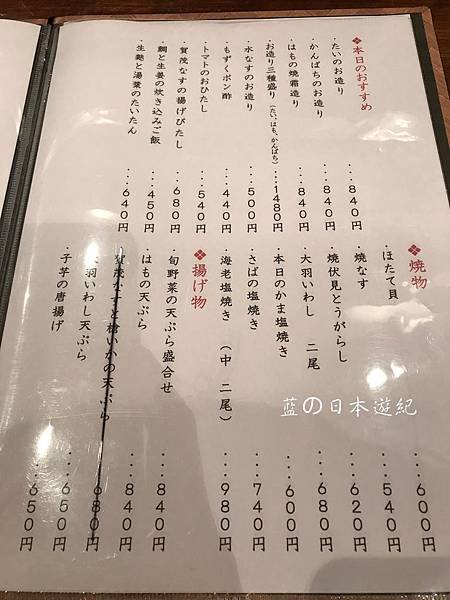 ❖本日のおすすめ
・たいのお造り ・・・840円
・かんぱちのお造り ・・・840円
・はもの焼霜造り ・・・840円
・お造り三種盛り（たい、はも、かんぱち） ・・・1480円
・水なすのお造り ・・・500円
・もずくポン酢 ・・・440円
・トマトのおひたし ・・・540円
・賀茂なすの揚げびたし ・・・680円
・鯛と生姜の炊き込みご飯 ・・・450円
・生麩と湯葉のたいたん ・・・640円
❖焼物
・ほたて貝 ・・・600円
・焼なす ・・・540円
・焼伏見とうがらし ・・・620円
・大羽いわし 二尾 ・・・680円
・本日のかま塩焼き ・・・600円
・さばの塩焼き ・・・740円
・海老塩焼き（中 二尾） ・・・980円
❖揚げ物
・旬野菜の天ぷら盛合せ ・・・840円
・はもの天ぷら ・・・840円
・賀茂なすと槍いかの天ぷら ・・・680円
・大羽いわし天ぷら ・・・650円
・子芋の唐揚げ ・・・650円
藍の日本遊紀